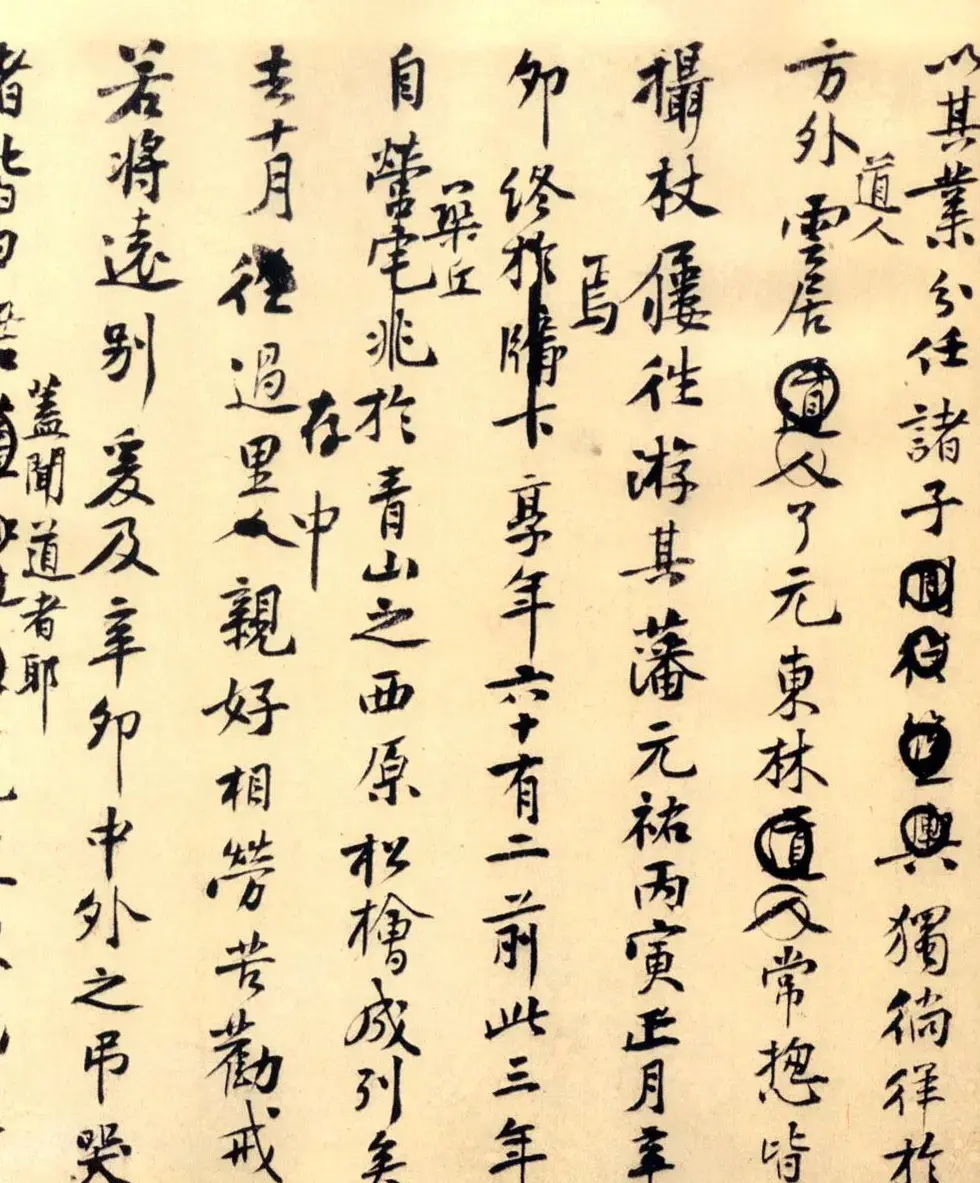 以其業分任諸子獨徜徉於
道人
方外雲居道人了元東林道人常揔皆
攝杖屨往游其藩元祐丙寅正月辛
焉
卯終於牖下享年六十有二前此三年
築丘
自營宅兆於青山之西原松檜成列矣
存中
去十月過里人親好相勞苦勸戒
若將遠別爰及辛卯中外之吊哭
蓋聞道者耶
者皆曰